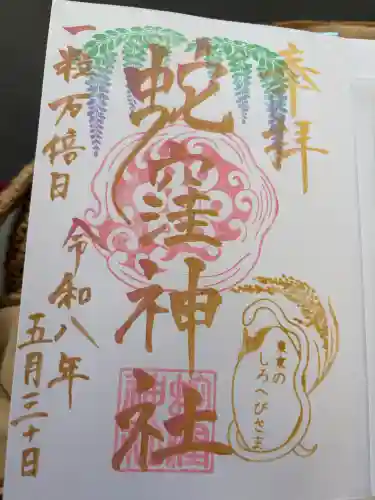 奉拝
蛇窪神社
東京の
しろへびさま
一粒万倍日
令和八年
五月三十日